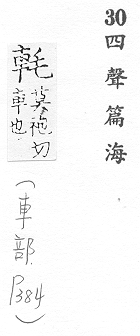 30四聲篇海
𨋍莫袍切
車也
(車部 P384)